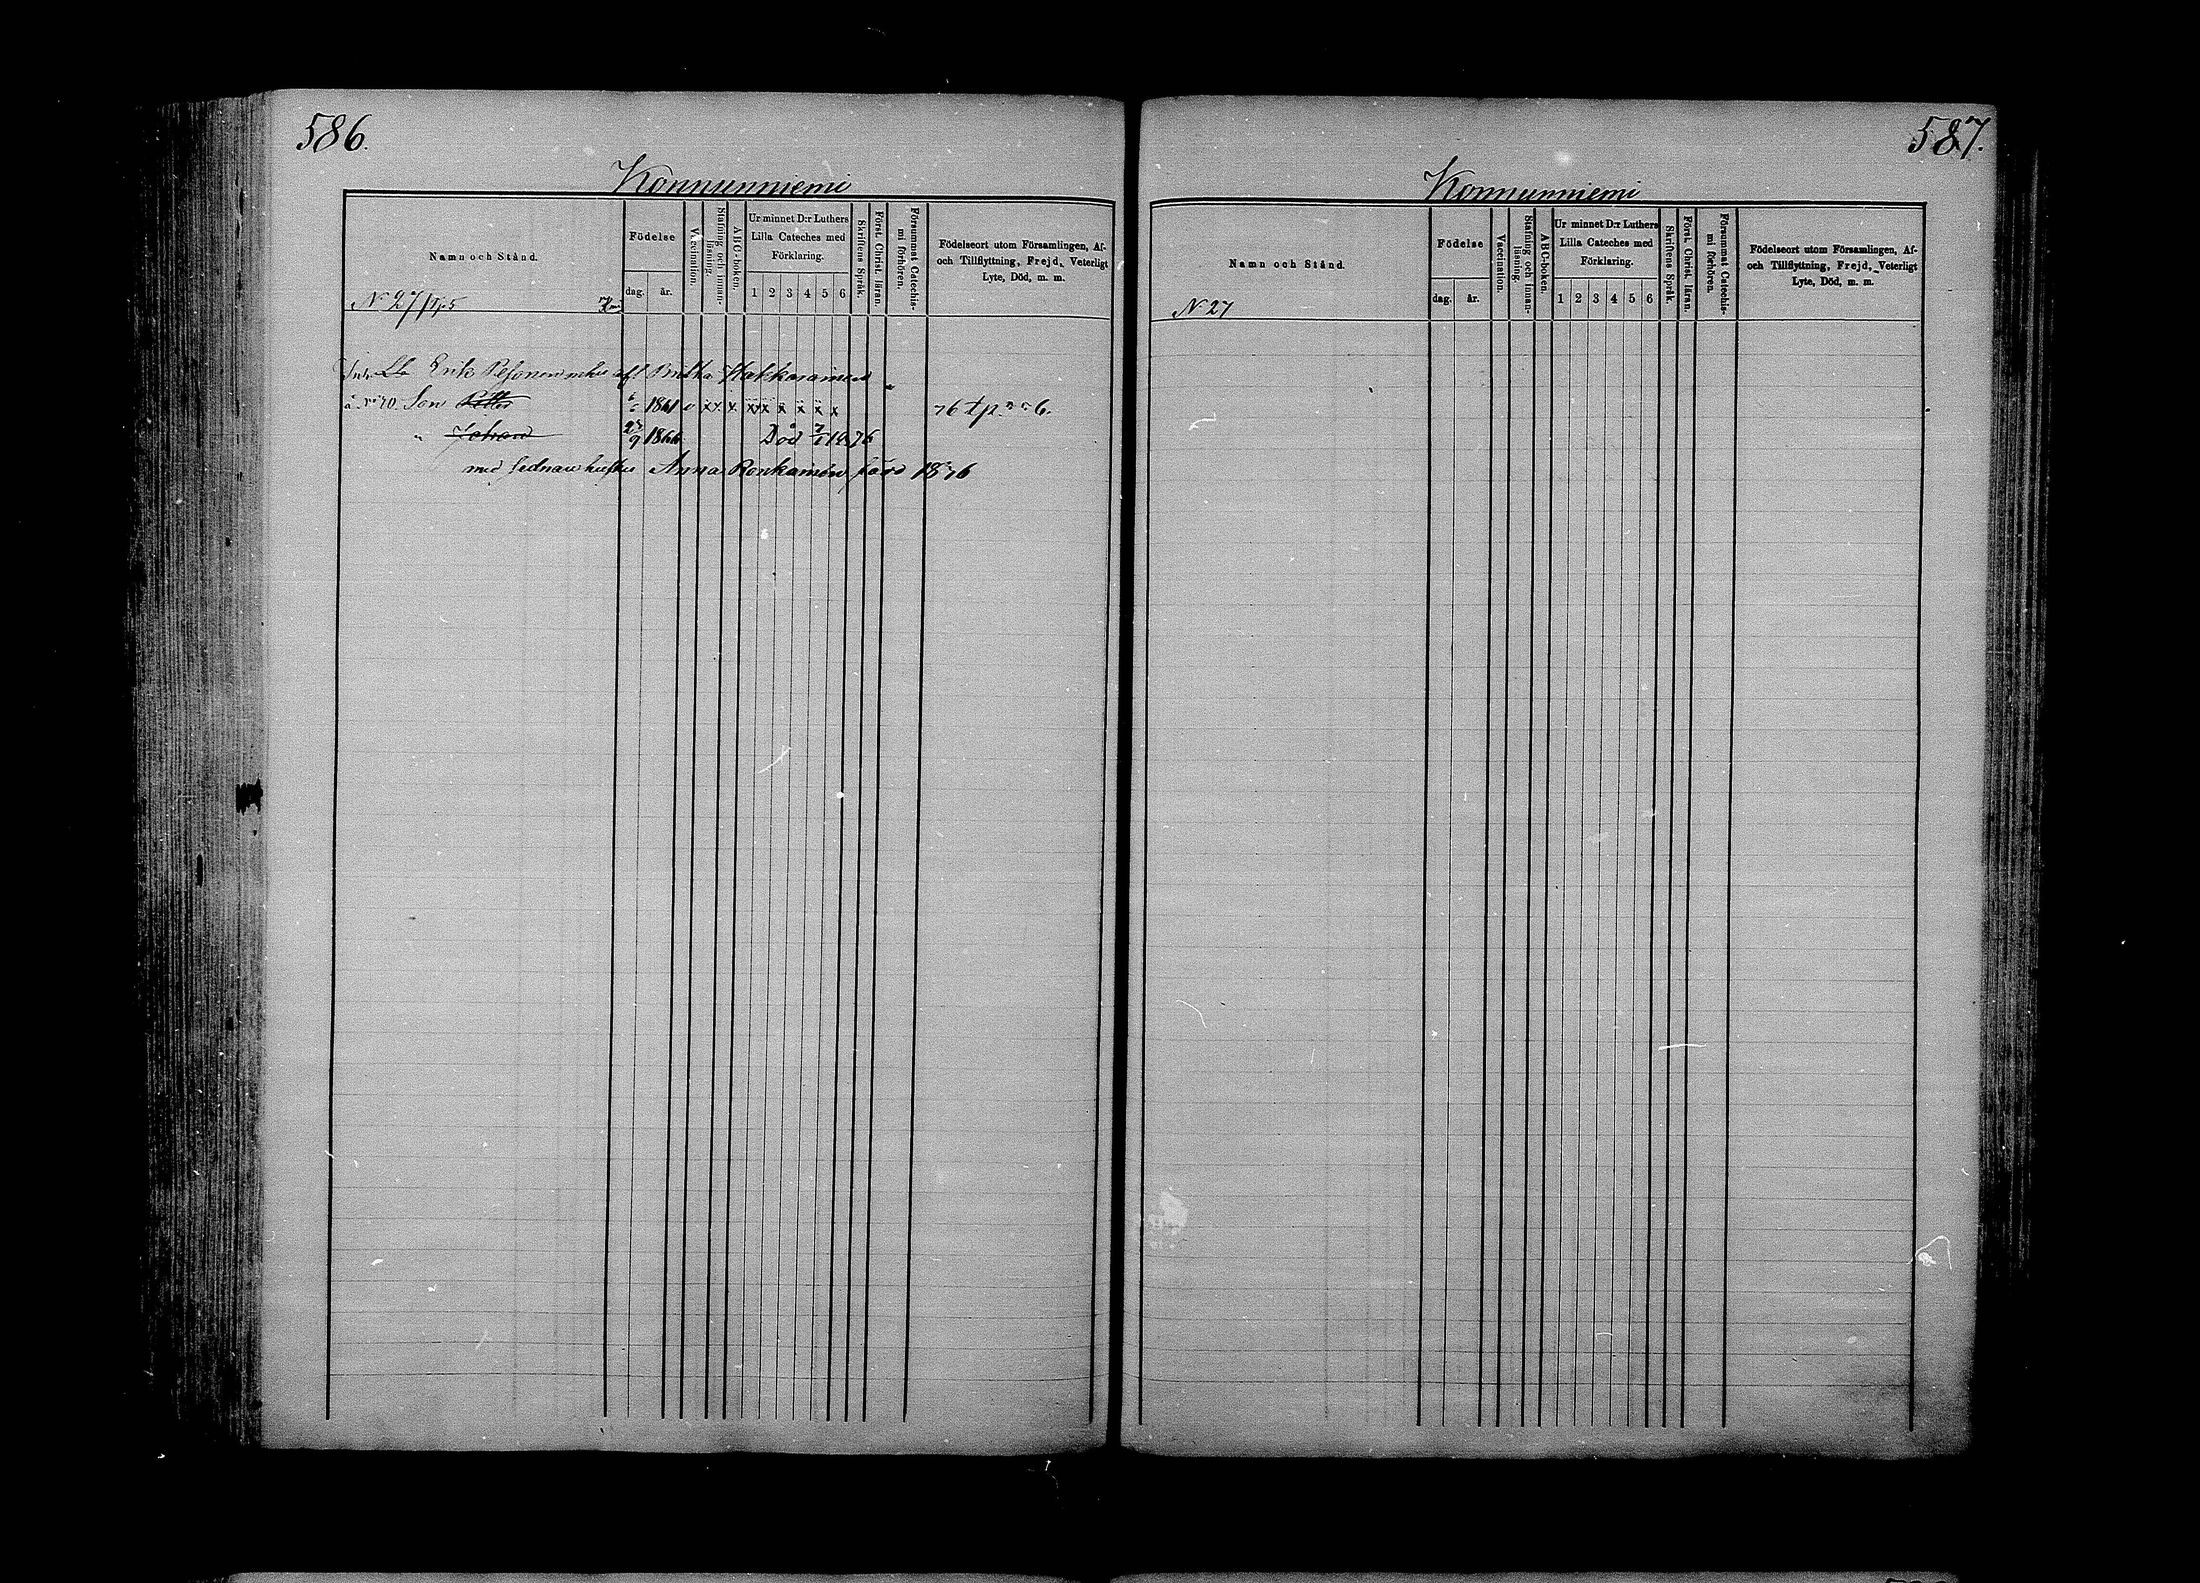 586.
Konnunniemi
Namn och Stånd.
Födelse
dag.
år.
Vaccination.
Stafning och innan-
läsning.
ABC-boken.
Ur minnet D:r Luthers
Lilla Cateches med
Förklaring.
1 2 3 4 5 6
Skriftens Språk.
Först. Christ. läran.
Försummat Catechis-
mi förhören.
Födelseort utom Församlingen, Af-
och Tillflyttning, Frejd, Veterligt
Lyte, Död, m. m.
N 27
Erik Pesonen
Son Petter 1861 x x x
" Johan 23/9 1866 Död 1876
med sednare hustru Anna Ronkainen 1876
587.
Konnunniemi
Namn och Stånd.
Födelse
dag.
år.
Vaccination.
Stafning och innan-
läsning.
ABC-boken.
Ur minnet D:r Luthers
Lilla Cateches med
Förklaring.
1 2 3 4 5 6
Skriftens Språk.
Först. Christ. läran.
Försummat Catechis-
mi förhören.
Födelseort utom Församlingen, Af-
och Tillflyttning, Frejd, Veterligt
Lyte, Död, m. m.
N 27